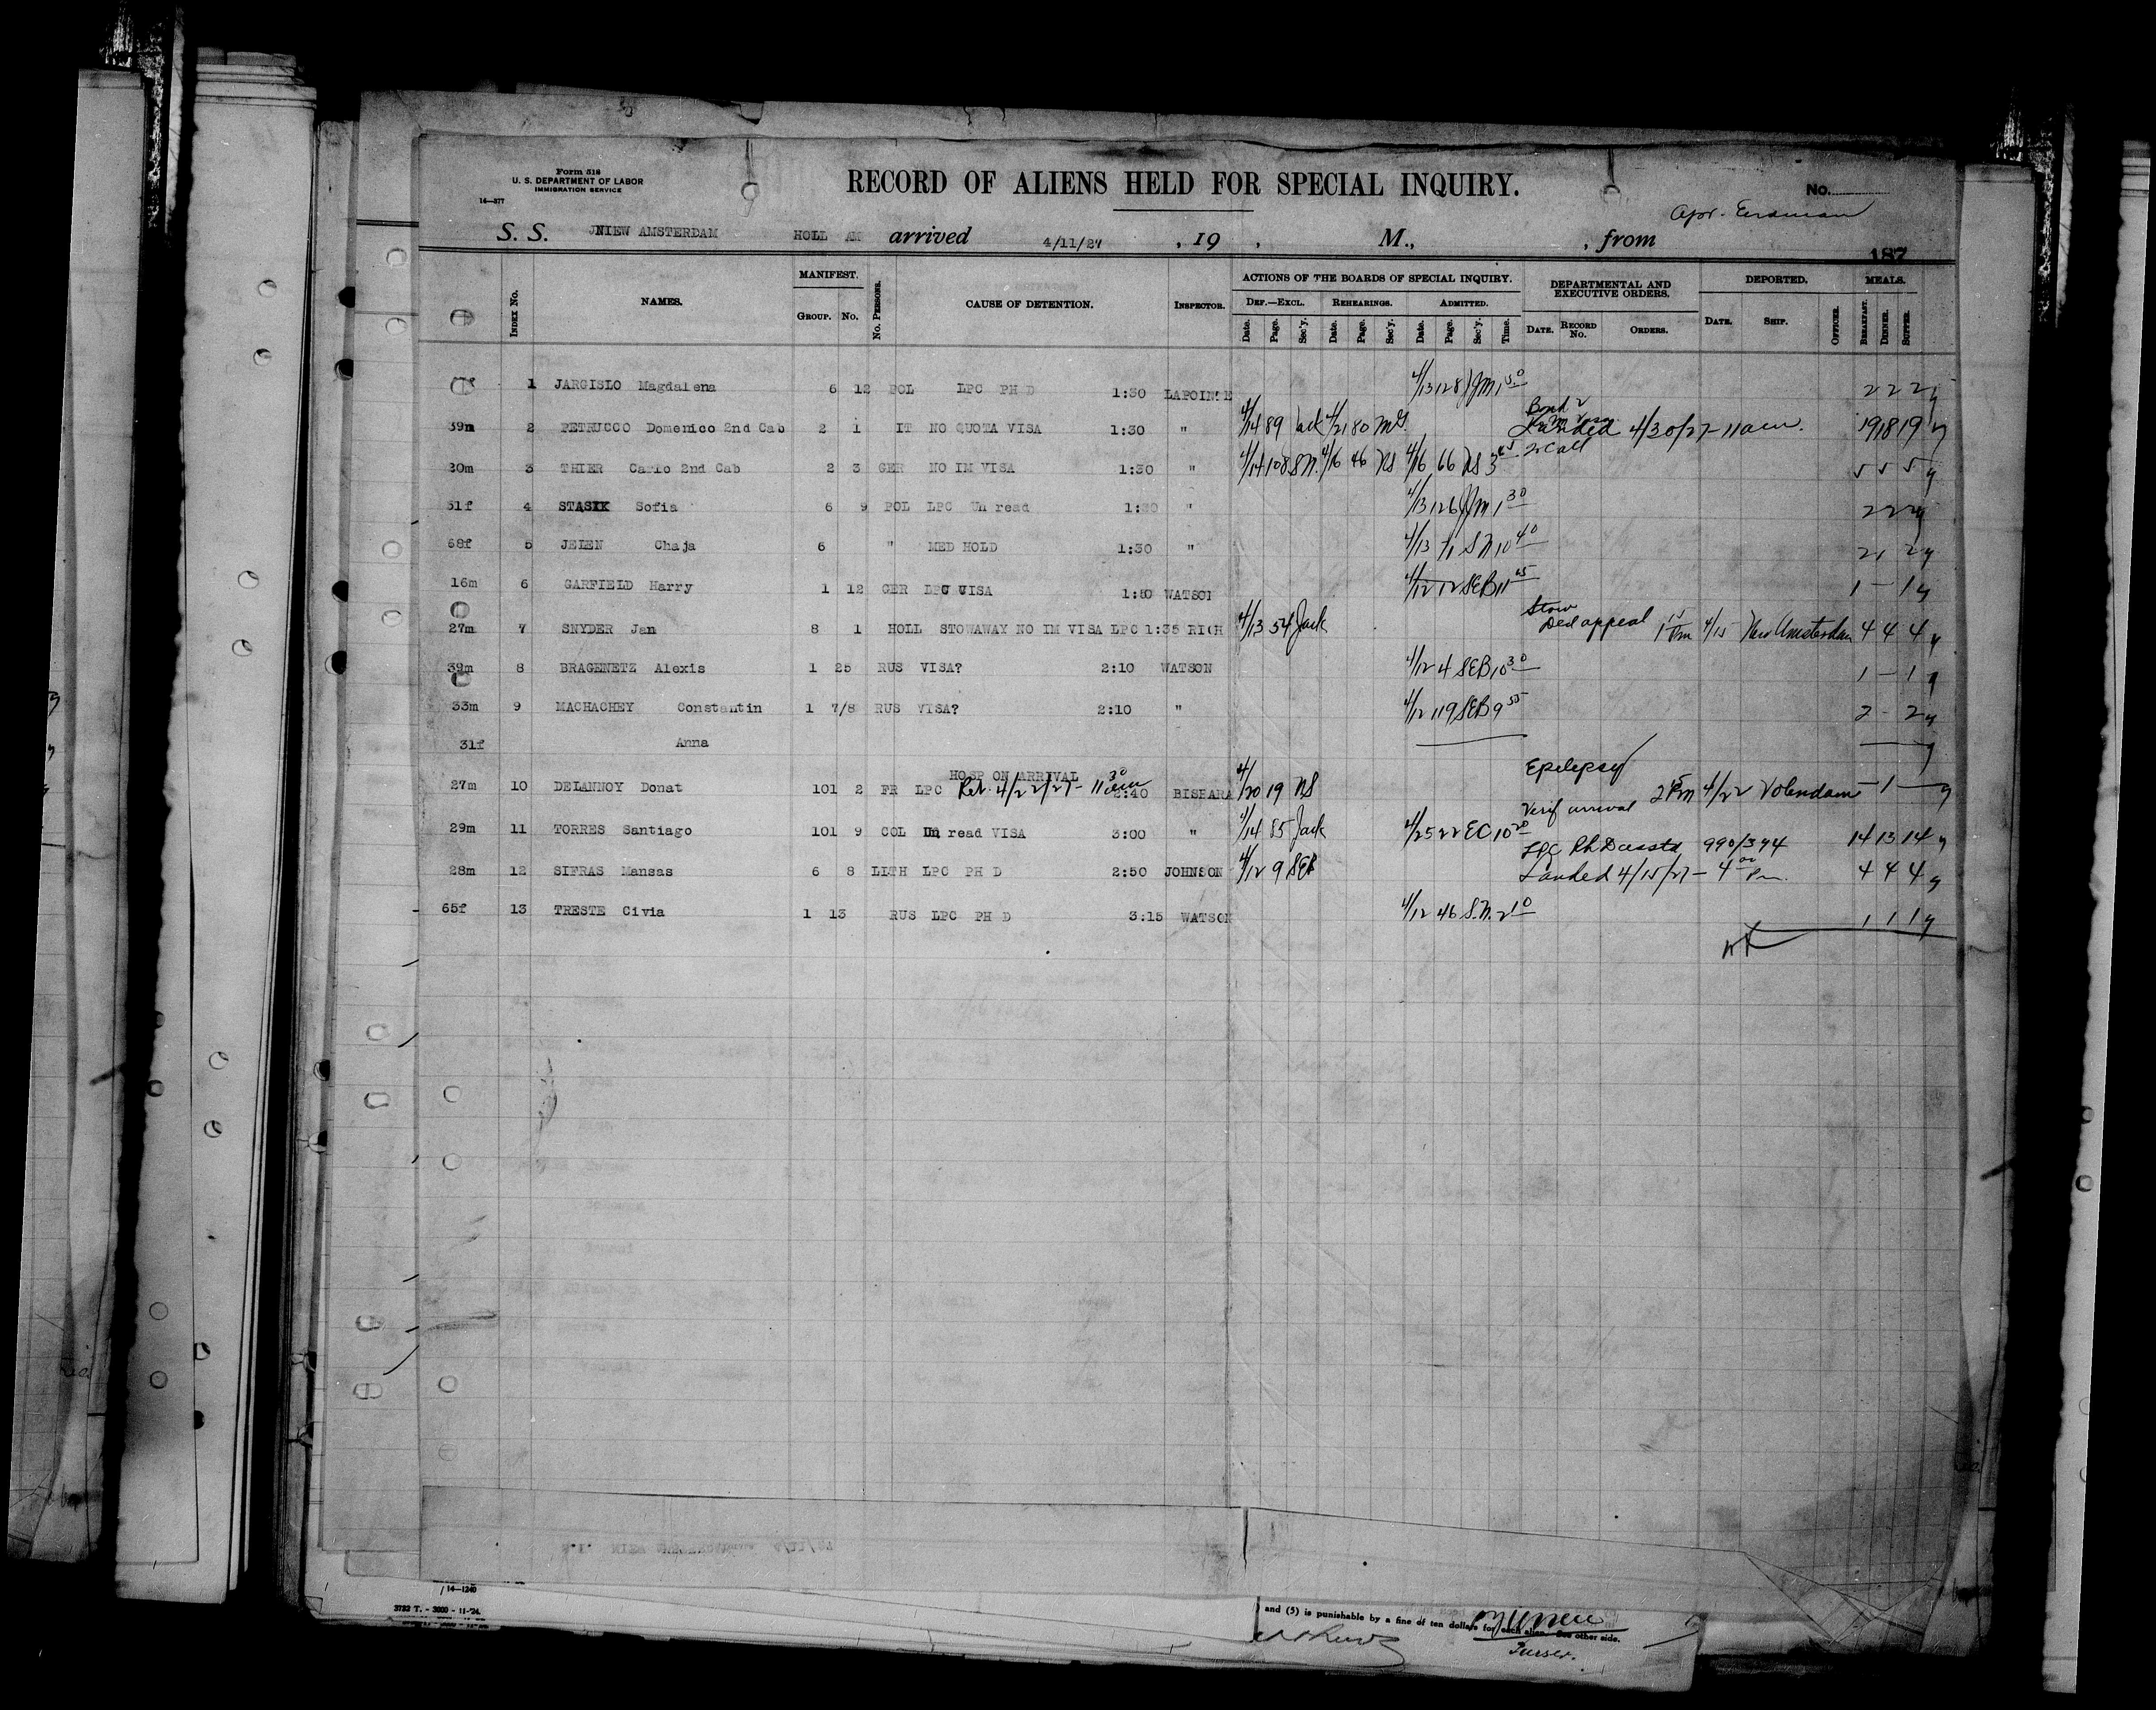 Form 518
U. S. DEPARTMENT OF LABOR
IMMIGRATION SERVICE
14—377
RECORD OF ALIENS HELD FOR SPECIAL INQUIRY.
No.
S. S. NIEW AMSTERDAM HOLL AM arrived 4/11/27 , 19 , M., , from
187
INDEX No. NAMES. MANIFEST. GROUP. No. No. PERSONS. CAUSE OF DETENTION. INSPECTOR. ACTIONS OF THE BOARDS OF SPECIAL INQUIRY. DEF.—EXCL. Date. Page. Sec'y. REHEARINGS. Date. Page. Sec'y. ADMITTED. Date. Page. Sec'y. Time. DEPARTMENTAL AND EXECUTIVE ORDERS. DATE. RECORD No. ORDERS. DEPORTED. DATE. SHIP. OFFICER. MEALS. BREAKFAST. DINNER. SUPPER.
1 JARGISLO Magdalena 6 12 POL LPC PH D 1:30 LAPOINTE 4/13 128 JM 1 2 2 2
39m 2 PETRUCCO Domenico 2nd Cab 2 1 IT NO QUOTA VISA 1:30 " 4/14 89 Jack 4/21 80 Bond Landed 4/30/27-11am. 19 18 19
20m 3 THIER Carlo 2nd Cab 2 3 GER NO IM VISA 1:30 " 4/14 108 S.N. 4/16 46 NS 4/16 66 NS 3 5 5 5
51f 4 STASIK Sofia 6 9 POL LPC Un read 1:30 " 4/13 126 JM 1 30 2 2 2
68f 5 JELEN Chaja 6 " MED HOLD 1:30 " 4/13 71 S N 10 40 2 1 2
16m 6 GARFIELD Harry 1 12 GER LPC VISA 1:50 WATSON 4/12 12 SEB 11 1 – 1
27m 7 SNYDER Jan 8 1 HOLL STOWAWAY NO IM VISA LPC 1:35 RICH 4/13 54 Jack Stow Ded appeal 1 15 Pm 4/15 New Amsterdam 4 4 4
39m 8 BRAGENETZ Alexis 1 25 RUS VISA? 2:10 WATSON 4/12 4 SEB 10 30 1 – 1
33m 9 MACHACHEY Constantin 1 7/8 RUS VISA? 2:10 " 4/12 119 SEB 9 55 2 - 2
31f Anna
HOSP ON ARRIVAL Epilepsy
27m 10 DELANNOY Donat 101 2 FR LPC Ret. 4/22/27- 11 30 am 2:40 BISHARA 4/20 19 NS 2 15 Pm 4/22 Volendam – 1 –
Verif arrival
29m 11 TORRES Santiago 101 9 COL Un read VISA 3:00 " 4/14 85 Jack 4/25 22 EC 10 20 14 13 14
LPC Ph D 990/394
28m 12 SIFRAS Mansas 6 8 LITH LPC PH D 2:50 JOHNSON 4/12 9 SEB Landed 4/15/27- 4 00 Pm. 4 4 4
65f 13 TRESTE Civia 1 13 RUS LPC PH D 3:15 WATSON 4/12 46 S.N. 2 10 1 1 1
14—1240
3733 T. - 3000 - 11-'24.
and (5) is punishable by a fine of ten dollars for each alien. See other side.
Purser.